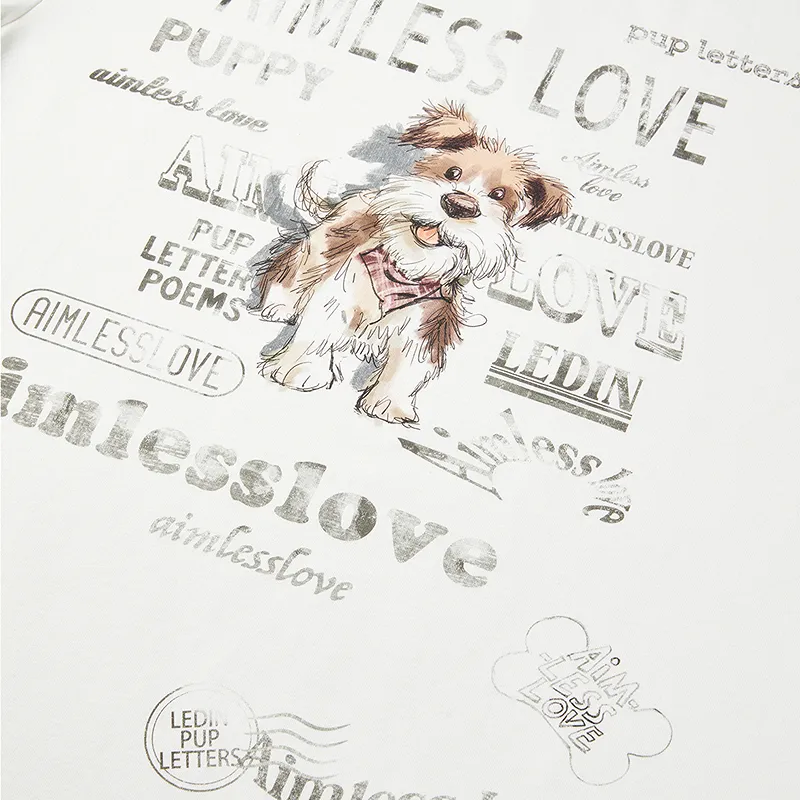 AIMLESS LOVE
pup letters
PUPPY
aimless love
Aimless
love
AIM
MLESSLOVE
PUP
LETTER
POEMS
LOVE
AIMLESSLOVE
LEDIN
imlesslove
Aimlesslove
aimlesslove
AIM-
LESS
LOVE
LEDIN
PUP
LETTERS
Aimlessl